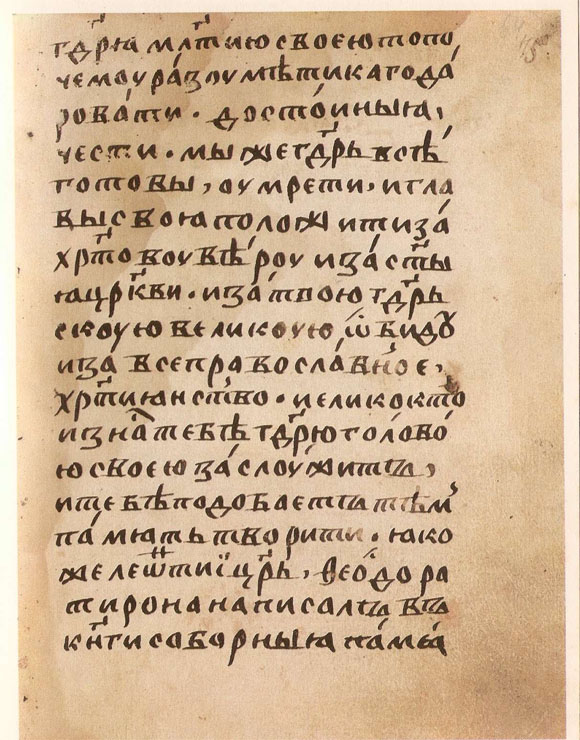 гдⷭ҇рꙗ млⷭ҇тию своею топо
чемоу разоумѣти кагода
ровати · достоиныꙗ,
чести · мы же гдⷭ҇рь всѣ
готовы, оумрети, и гла
вы своꙗ положити за
хрⷭ҇товоу вѣроу и за стⷭ҇ы
ꙗ црⷭ҇кви · и за твою гдⷭ҇рь
скоую великоую ѡбидꙋ
и за все православное,
хрⷭ҇тиꙗнство · и елико кто
из наⷭ҇ тебѣ гдⷭ҇рю голово
ю своею заслоужитъ,
и тебѣ подобаетъ тѣмъ
памѧть творити · ꙗко
же леѡⷩ҇тїи црⷭ҇ь, ѳеодора
тирона написалъ въ
кнⷭ҇ги соборныꙗ памѧ